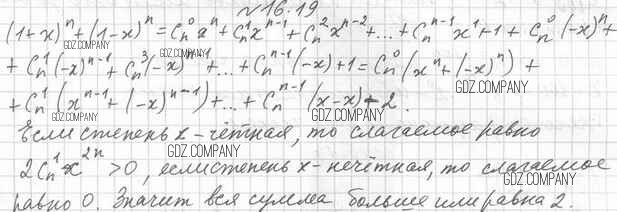 √16.19
(1+x)^n + (1-x)^n = C_n^0 x^n + C_n^1 x^{n-1} + C_n^2 x^{n-2} + ... + C_n^{n-1} x^1 + 1 + C_n^0 (-x)^n +
+ C_n^1 (-x)^{n-1} + C_n^3 (-x)^{n-1} + ... + C_n^{n-1} (-x) + 1 = C_n^0 (x^n + (-x)^n) +
+ C_n^1 (x^{n-1} + (-x)^{n-1}) + ... + C_n^{n-1} (x-x) + 2.
Если степень x - чётная, то слагаемое равно
2C_n^1 x^{2n} > 0, если степень x - нечётная, то слагаемое
равно 0. Значит вся сумма больше или равна 2.
GDZ.COMPANY
GDZ.COMPANY
GDZ.COMPANY
GDZ.COMPANY
GDZ.COMPANY
GDZ.COMPANY